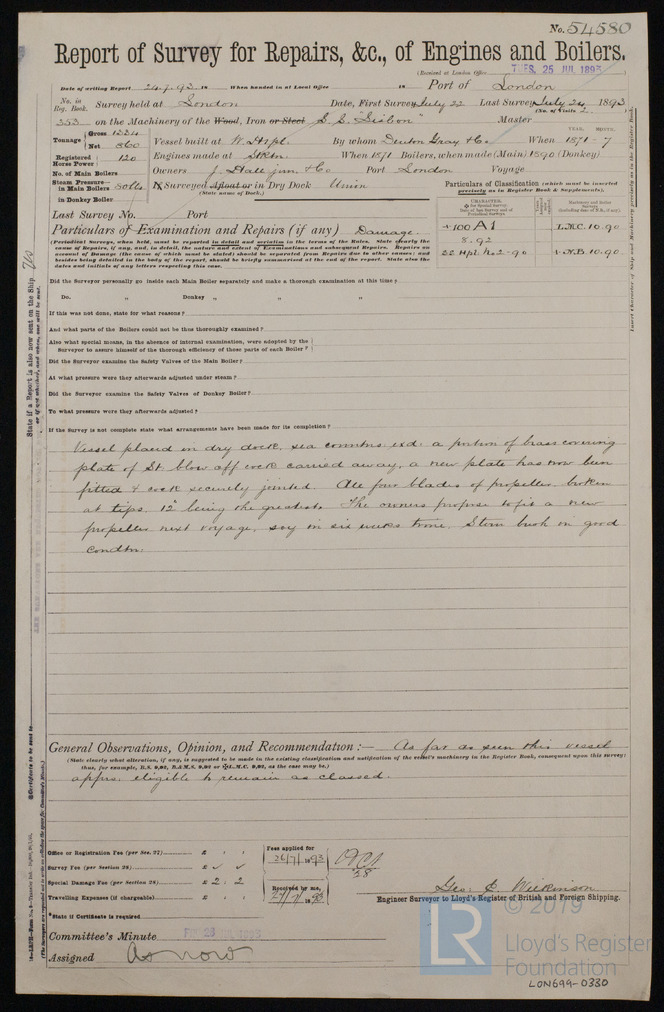 No. 54580
Report of Survey for Repairs, &c., of Engines and Boilers.
(Received at London Office TUES. 25 JUL 1893 )
Date of writing Report 24.7.93 18 When handed in at Local Office 18 Port of London
No. in Reg. Book. Survey held at London Date, First Survey July 22 Last Survey July 24 1893
(No. of Visits 2 )
353 on the Machinery of the Wood, Iron or Steel S.S. "Lisbon" Master
Tonnage Gross 1234 Net 860
Vessel built at W. Htpl. By whom Denton Gray & Co. When 1871 - 7
YEAR. MONTH.
Registered Horse Power 120
Engines made at Stktn When 1871 Boilers, when made (Main) 1890 (Donkey)
No. of Main Boilers
Owners J. Hall jun. & Co Port London Voyage
Steam Pressure— in Main Boilers 80 lbs
in Donkey Boiler
If Surveyed Afloat or in Dry Dock Union
(State name of Dock.)
Particulars of Classification (which must be inserted precisely as in Register Book & Supplements).
Last Survey No. Port
Particulars of Examination and Repairs (if any) Damage.
+ 100 A1
8.92
L.M.C. 10.90
N.B. 10.90
(Periodical Surveys, when held, must be reported in detail and seriatim in the terms of the Rules. State clearly the
cause of Repairs, if any, and, in detail, the nature and extent of Examinations and subsequent Repairs. Repairs on
account of Damage (the cause of which must be stated) should be separated from Repairs due to other causes; and
besides being detailed in the body of the report, should be briefly summarised at the end of the report. State also the
dates and initials of any letters respecting this case.
Insert Character of Ship and Machinery precisely as in the Register Book.
State if a Report is also now sent on the Ship No
Did the Surveyor personally go inside each Main Boiler separately and make a thorough examination at this time?
Do. „ Donkey „ „ „
If this was not done, state for what reasons?
And what parts of the Boilers could not be thus thoroughly examined?
Also what special means, in the absence of internal examination, were adopted by the
Surveyor to assure himself of the thorough efficiency of those parts of each Boiler?
Did the Surveyor examine the Safety Valves of the Main Boiler?
At what pressure were they afterwards adjusted under steam?
Did the Surveyor examine the Safety Valves of Donkey Boiler?
To what pressure were they afterwards adjusted?
If the Survey is not complete state what arrangements have been made for its completion?
Vessel placed in dry dock, sea conntns exd: a portion of brass covering
plate of St. blow off cock carried away, a new plate has now been
fitted & cock securely jointed. All four blades of propeller broken
at tips, 12" being the greatest. The owners propose to fit a new
propeller next voyage, say in six weeks time. Stern bush in good
condtn:
General Observations, Opinion, and Recommendation :— As far as seen this vessel
(State clearly what alteration, if any, is suggested to be made in the existing classification and notification of the vessel's machinery in the Register Book, consequent upon this survey;
thus, for example, B.S. 9,92, B.&M.S. 9,92 or L.M.C. 9,92, as the case may be.)
apprs. eligible to remain as classed.
Office or Registration Fee (per Sec. 27) £ : :
Survey Fee (per Section 28) £
Special Damage Fee (per Section 28) £ 2 : 2
Travelling Expenses (if chargeable) £ : :
Fees applied for
26/7/1893
Received by me,
*State if Certificate is required
Geo: C. Wilkinson
Engineer Surveyor to Lloyd's Register of British and Foreign Shipping.
Committee's Minute FRI 28 JUL 1893
Assigned As now
© 2019
LR
Lloyd's Register
Foundation
LON699-0330